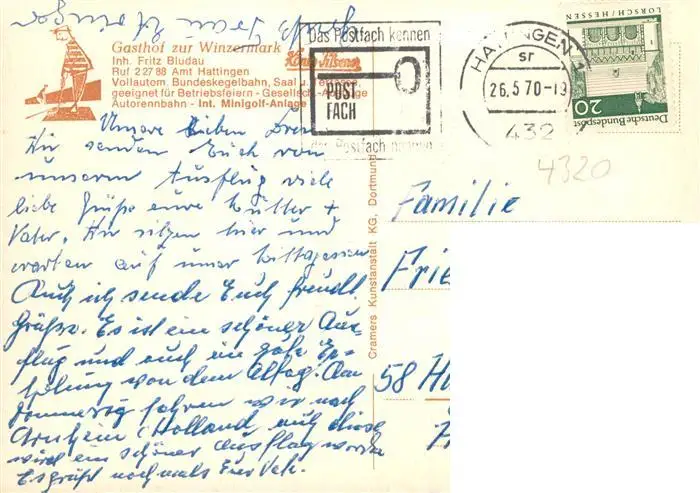 Gasthof zur Winzermark
Inh. Fritz Bludau
Ruf 2 27 88 Amt Hattingen
Vollautom. Bundeskegelbahn, Saal u.
geeignet für Betriebsfeiern - Gesellsch.-Anlage
Autorennbahn - Int. Minigolf-Anlage
König Pilsener
Das Postfach kennen
POST
FACH
das Postfach nehmen
HATTINGEN 1
sr
26.5.70-19
432
LORSCH/HESSEN
Deutsche Bundespost
20
4320
Unsere lieben
Wir senden Euch von
unserem Ausflug viele
liebe Grüße eure Mutter +
Vater. Wir sitzen hier und
warten auf unser Mittagessen
Auch ich sende Euch freundl.
Grüße. Es ist ein schöner Aus-
flug und auch eine gute Er-
holung von dem Alltag. Am
fahren wir nach
Arnheim (Holland, auch diese
wird ein schöner Ausflug werden
Es grüßt nochmals Euer Vati.
Cramers Kunstanstalt KG, Dortmund
Familie
Frie
58 H